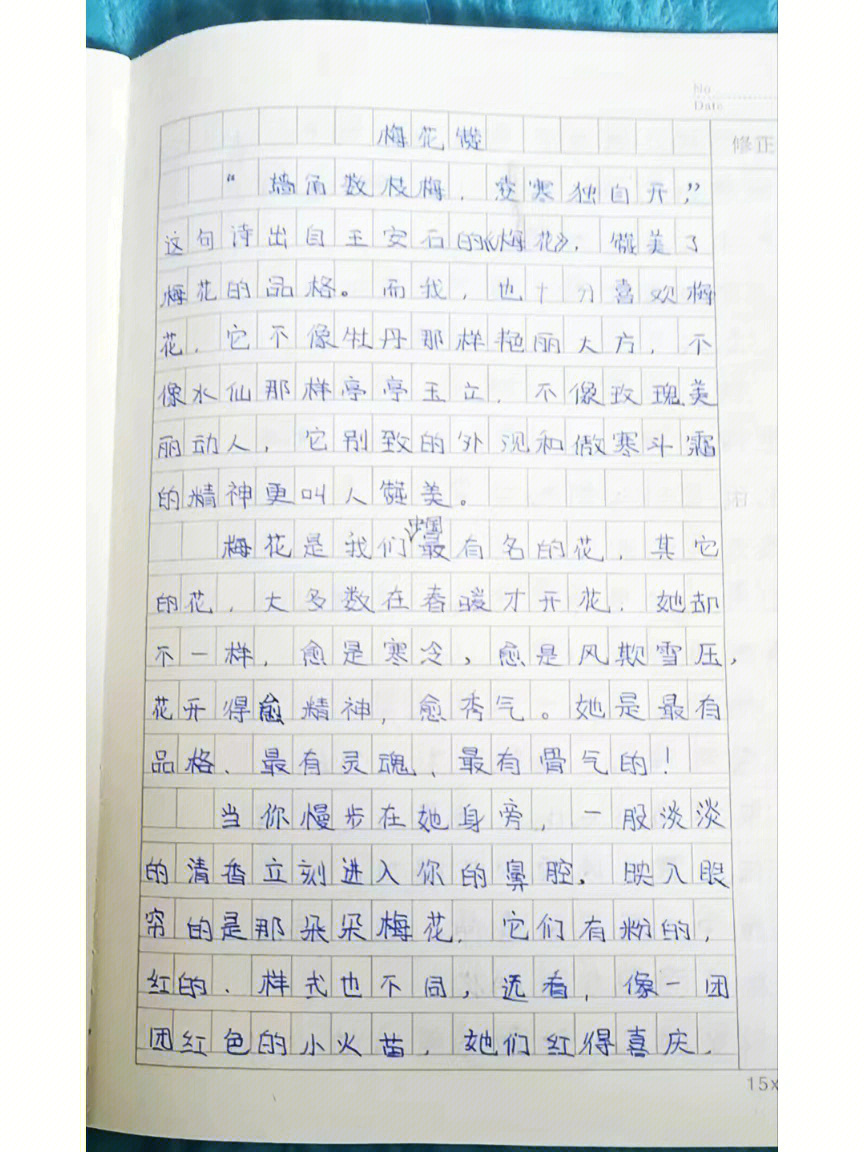 No
Date
修正
梅花赞
“墙角数枝梅,凌寒独自开,”
这句诗出自王安石的《梅花》,赞美了
梅花的品格。而我,也十分喜欢梅
花,它不像牡丹那样艳丽大方,不
像水仙那样亭亭玉立,不像玫瑰美
丽动人,它别致的外观和傲寒斗霜
的精神更叫人赞美。
梅花是我们中国最有名的花,其它
的花,大多数在春暖才开花,她却
不一样,愈是寒冷,愈是风欺雪压,
花开得愈精神,愈秀气。她是最有
品格、最有灵魂、最有骨气的!
当你慢步在她身旁,一股淡淡
的清香立刻进入你的鼻腔,映入眼
帘的是那朵朵梅花,它们有粉的,
红的、样式也不同,远看,像一团
团红色的小火苗,她们红得喜庆,
15x